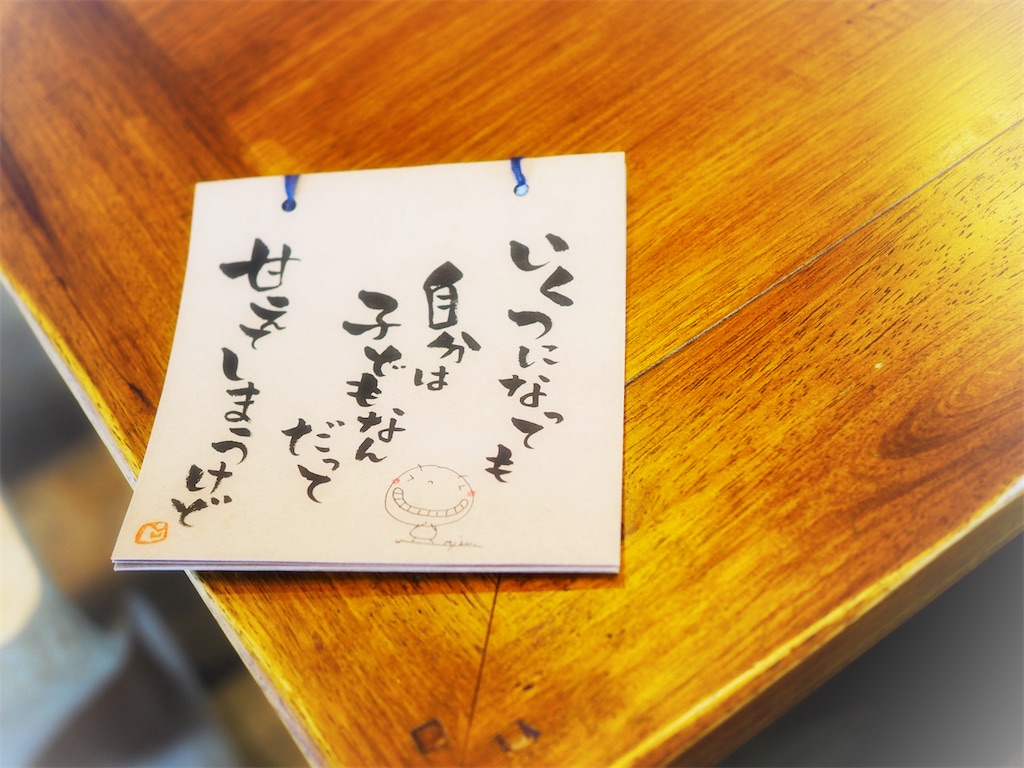 いくつになっても
自分は
子どもなん
だって
甘えてしまうけど